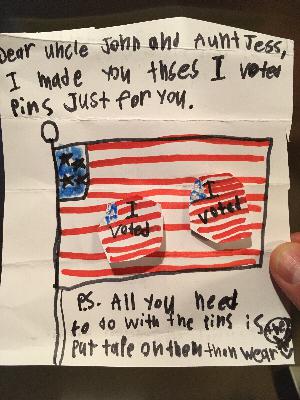 Dear uncle John and Aunt Jess,
I made you thses I voted
Pins Just for you.
I
voted
I
voted
P.S. All you need
to do with the pins is
Put tape on then then wear